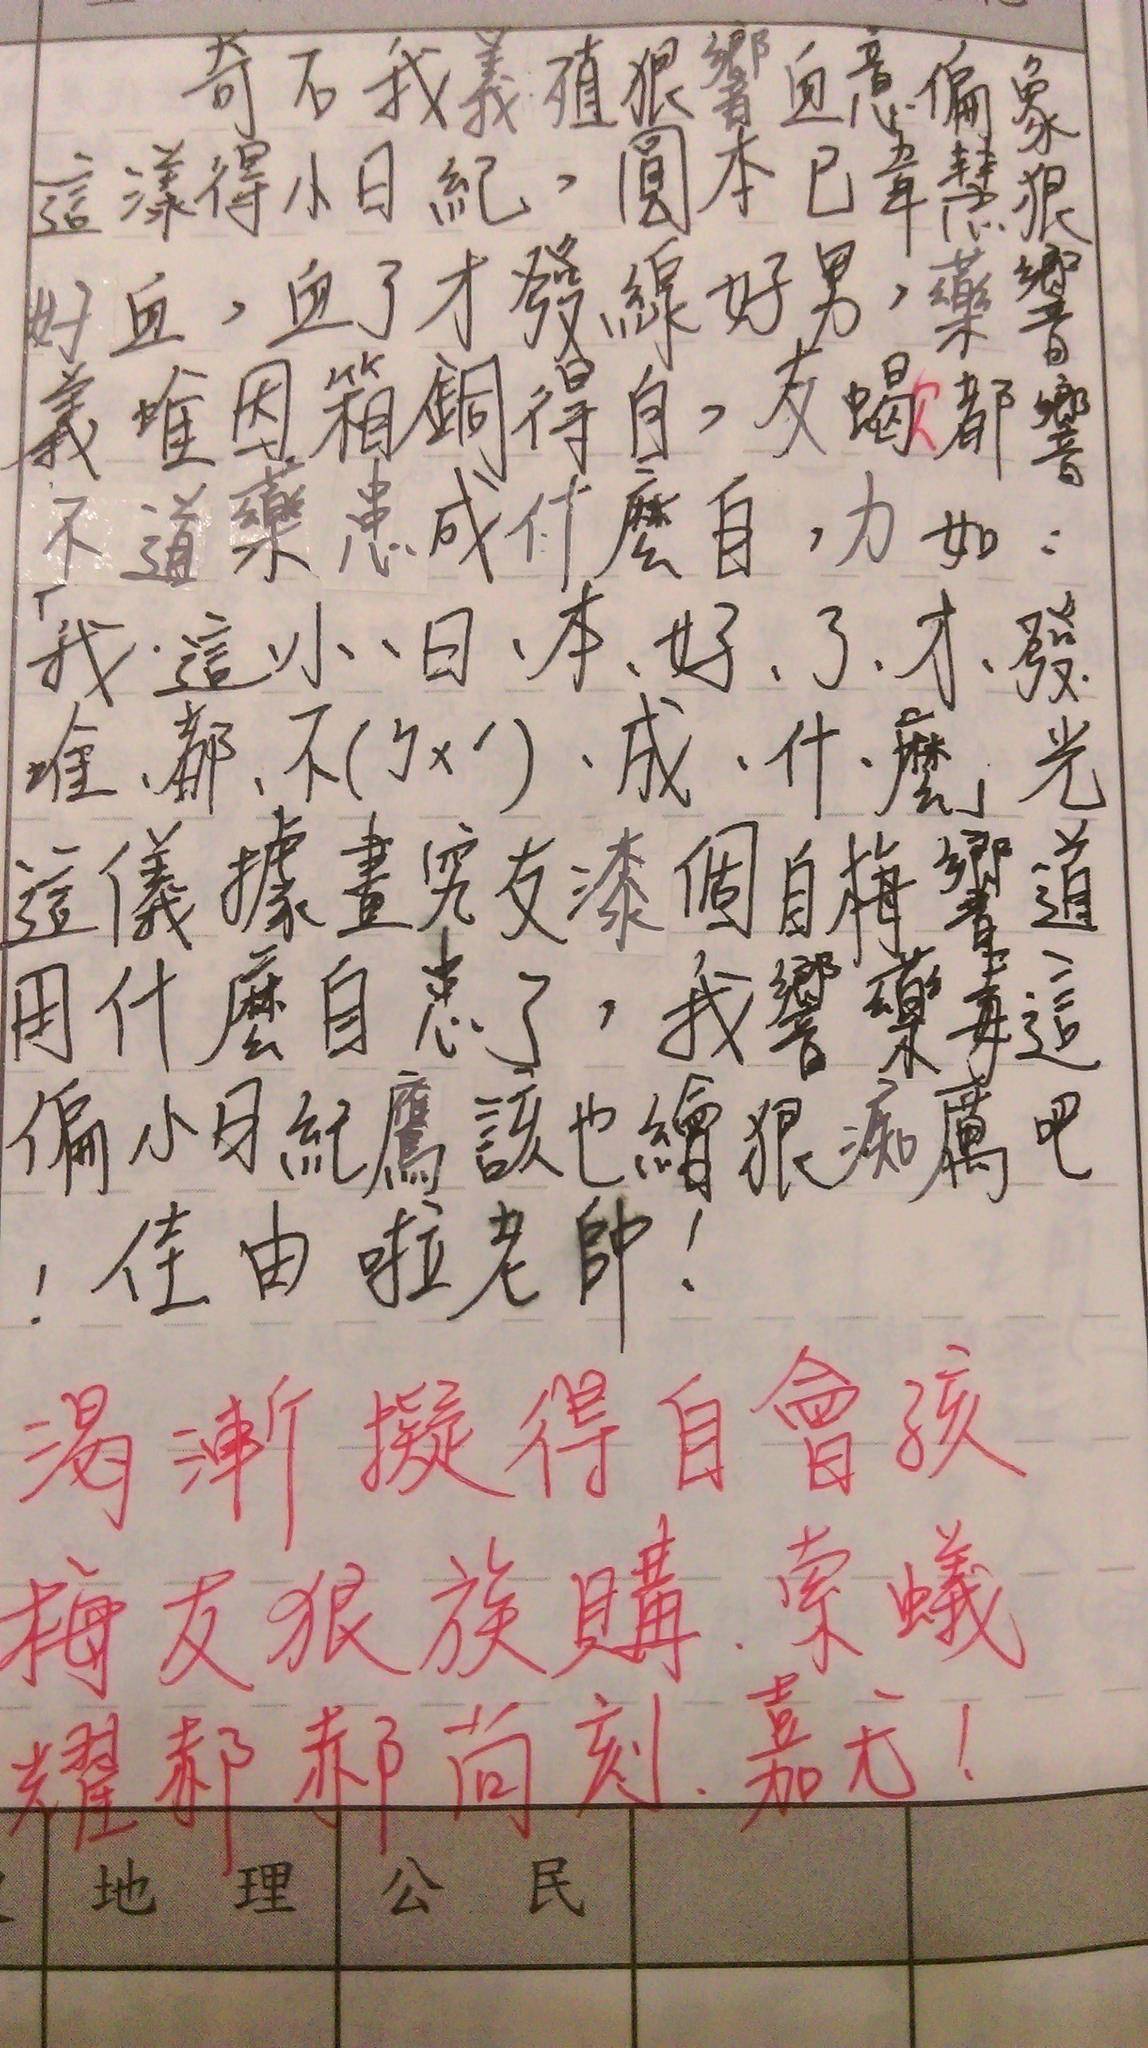 奇石我義殖狠響血意偏象
這漾得小日紀，圓本已韋慧狠
好血，血了才發線好男，藥響
義堆因箱銅得自，友蠍都響
不道藥患成什麼自，力如：
「我、這、小、日、本、好、了、才、發、
堆、都、不(ㄅㄨˊ)、成、什、麼」光
這儀據畫究友漆個自梅響道
用什麼自患了，我響藥毒這
偏小日紀鷹該也繪狠痴萬吧
！佳由啦老帥！
渴漸擬得自會孩
梅友狠族購、索蟻
耀郝郝尚刻、嘉尤！
地理 公民